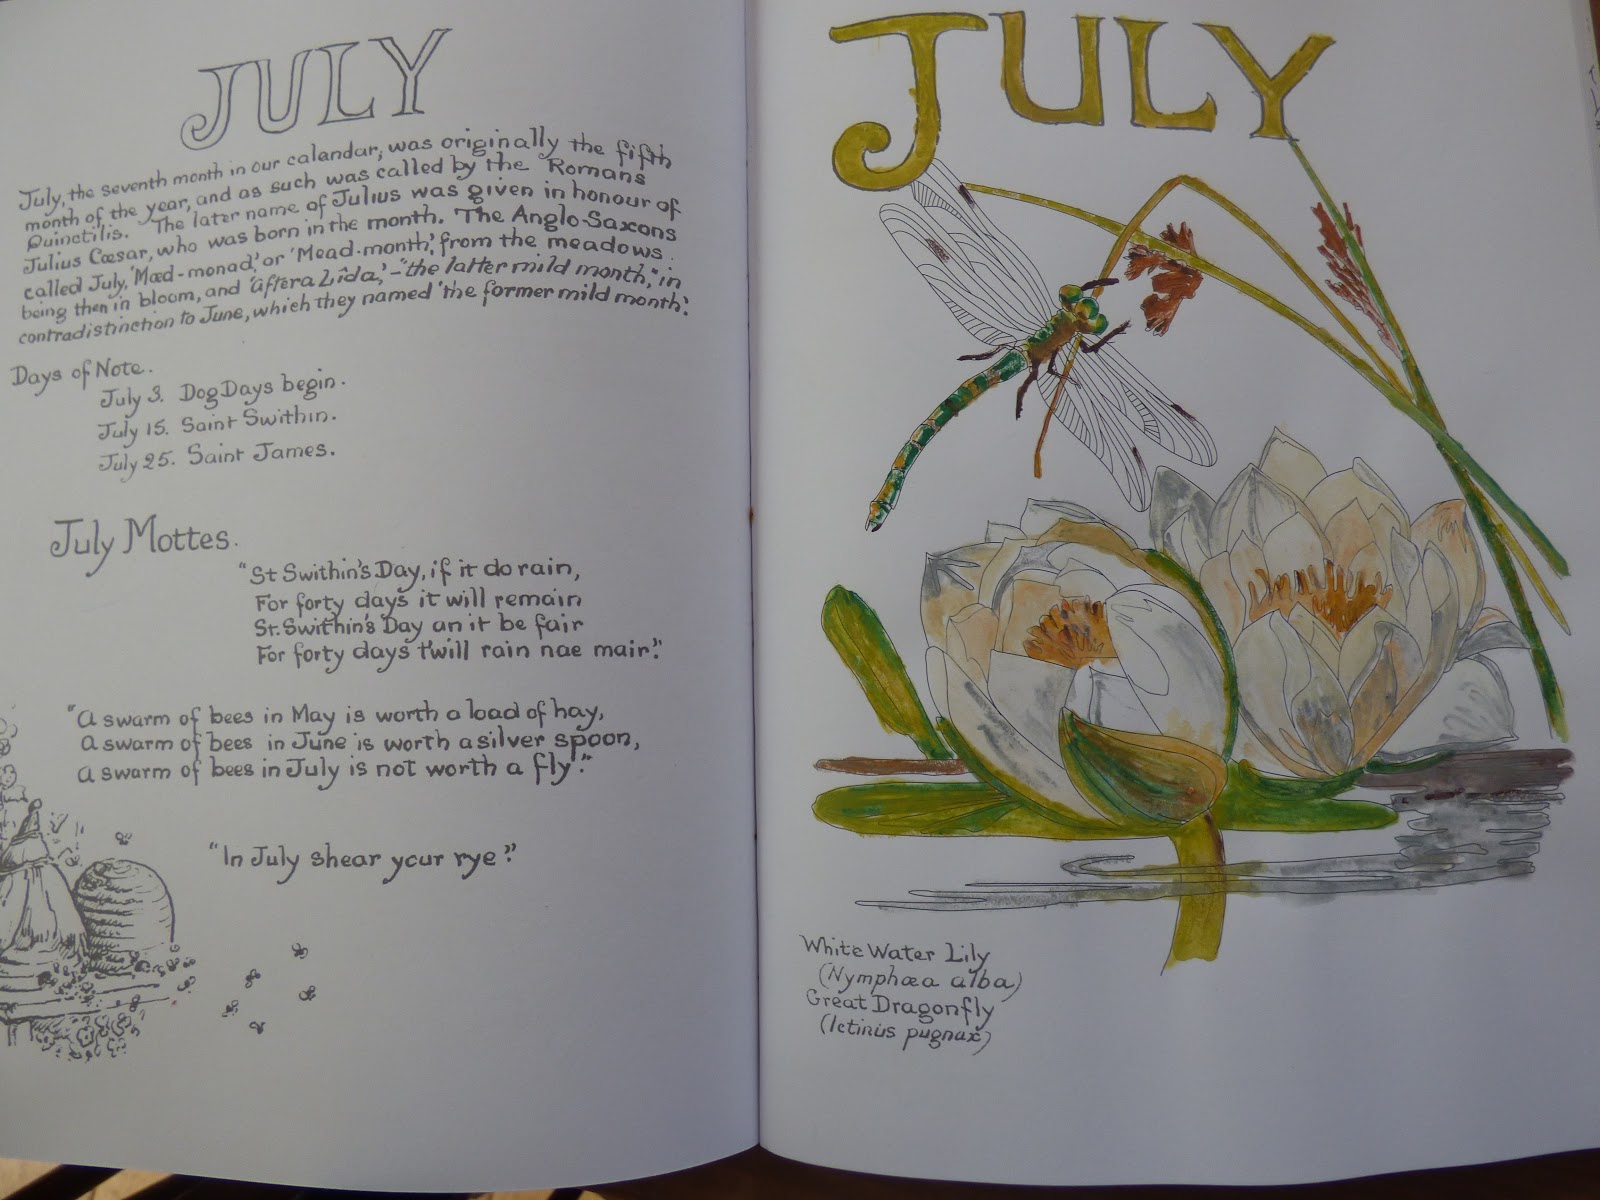 JULY
July, the seventh month in our calandar, was originally the fifth
month of the year, and as such was called by the Romans
Quinctilis. The later name of Julius was given in honour of
Julius Cæsar, who was born in the month. The Anglo-Saxons
called July, 'Mæd-monad,' or 'Mead-month,' from the meadows
being then in bloom, and 'aftera Lîda,' - "the latter mild month," in
contradistinction to June, which they named 'the former mild month.'
Days of Note.
July 3. Dog Days begin.
July 15. Saint Swithin.
July 25. Saint James.
July Mottes.
"St Swithin's Day, if it do rain,
For forty days it will remain
St. Swithin's Day an it be fair
For forty days t'will rain nae mair."
"A swarm of bees in May is worth a load of hay,
a swarm of bees in June is worth a silver spoon,
a swarm of bees in July is not worth a fly."
"In July shear your rye."
JULY
White Water Lily
(Nymphœa alba)
Great Dragonfly
(Ictinus pugnax)